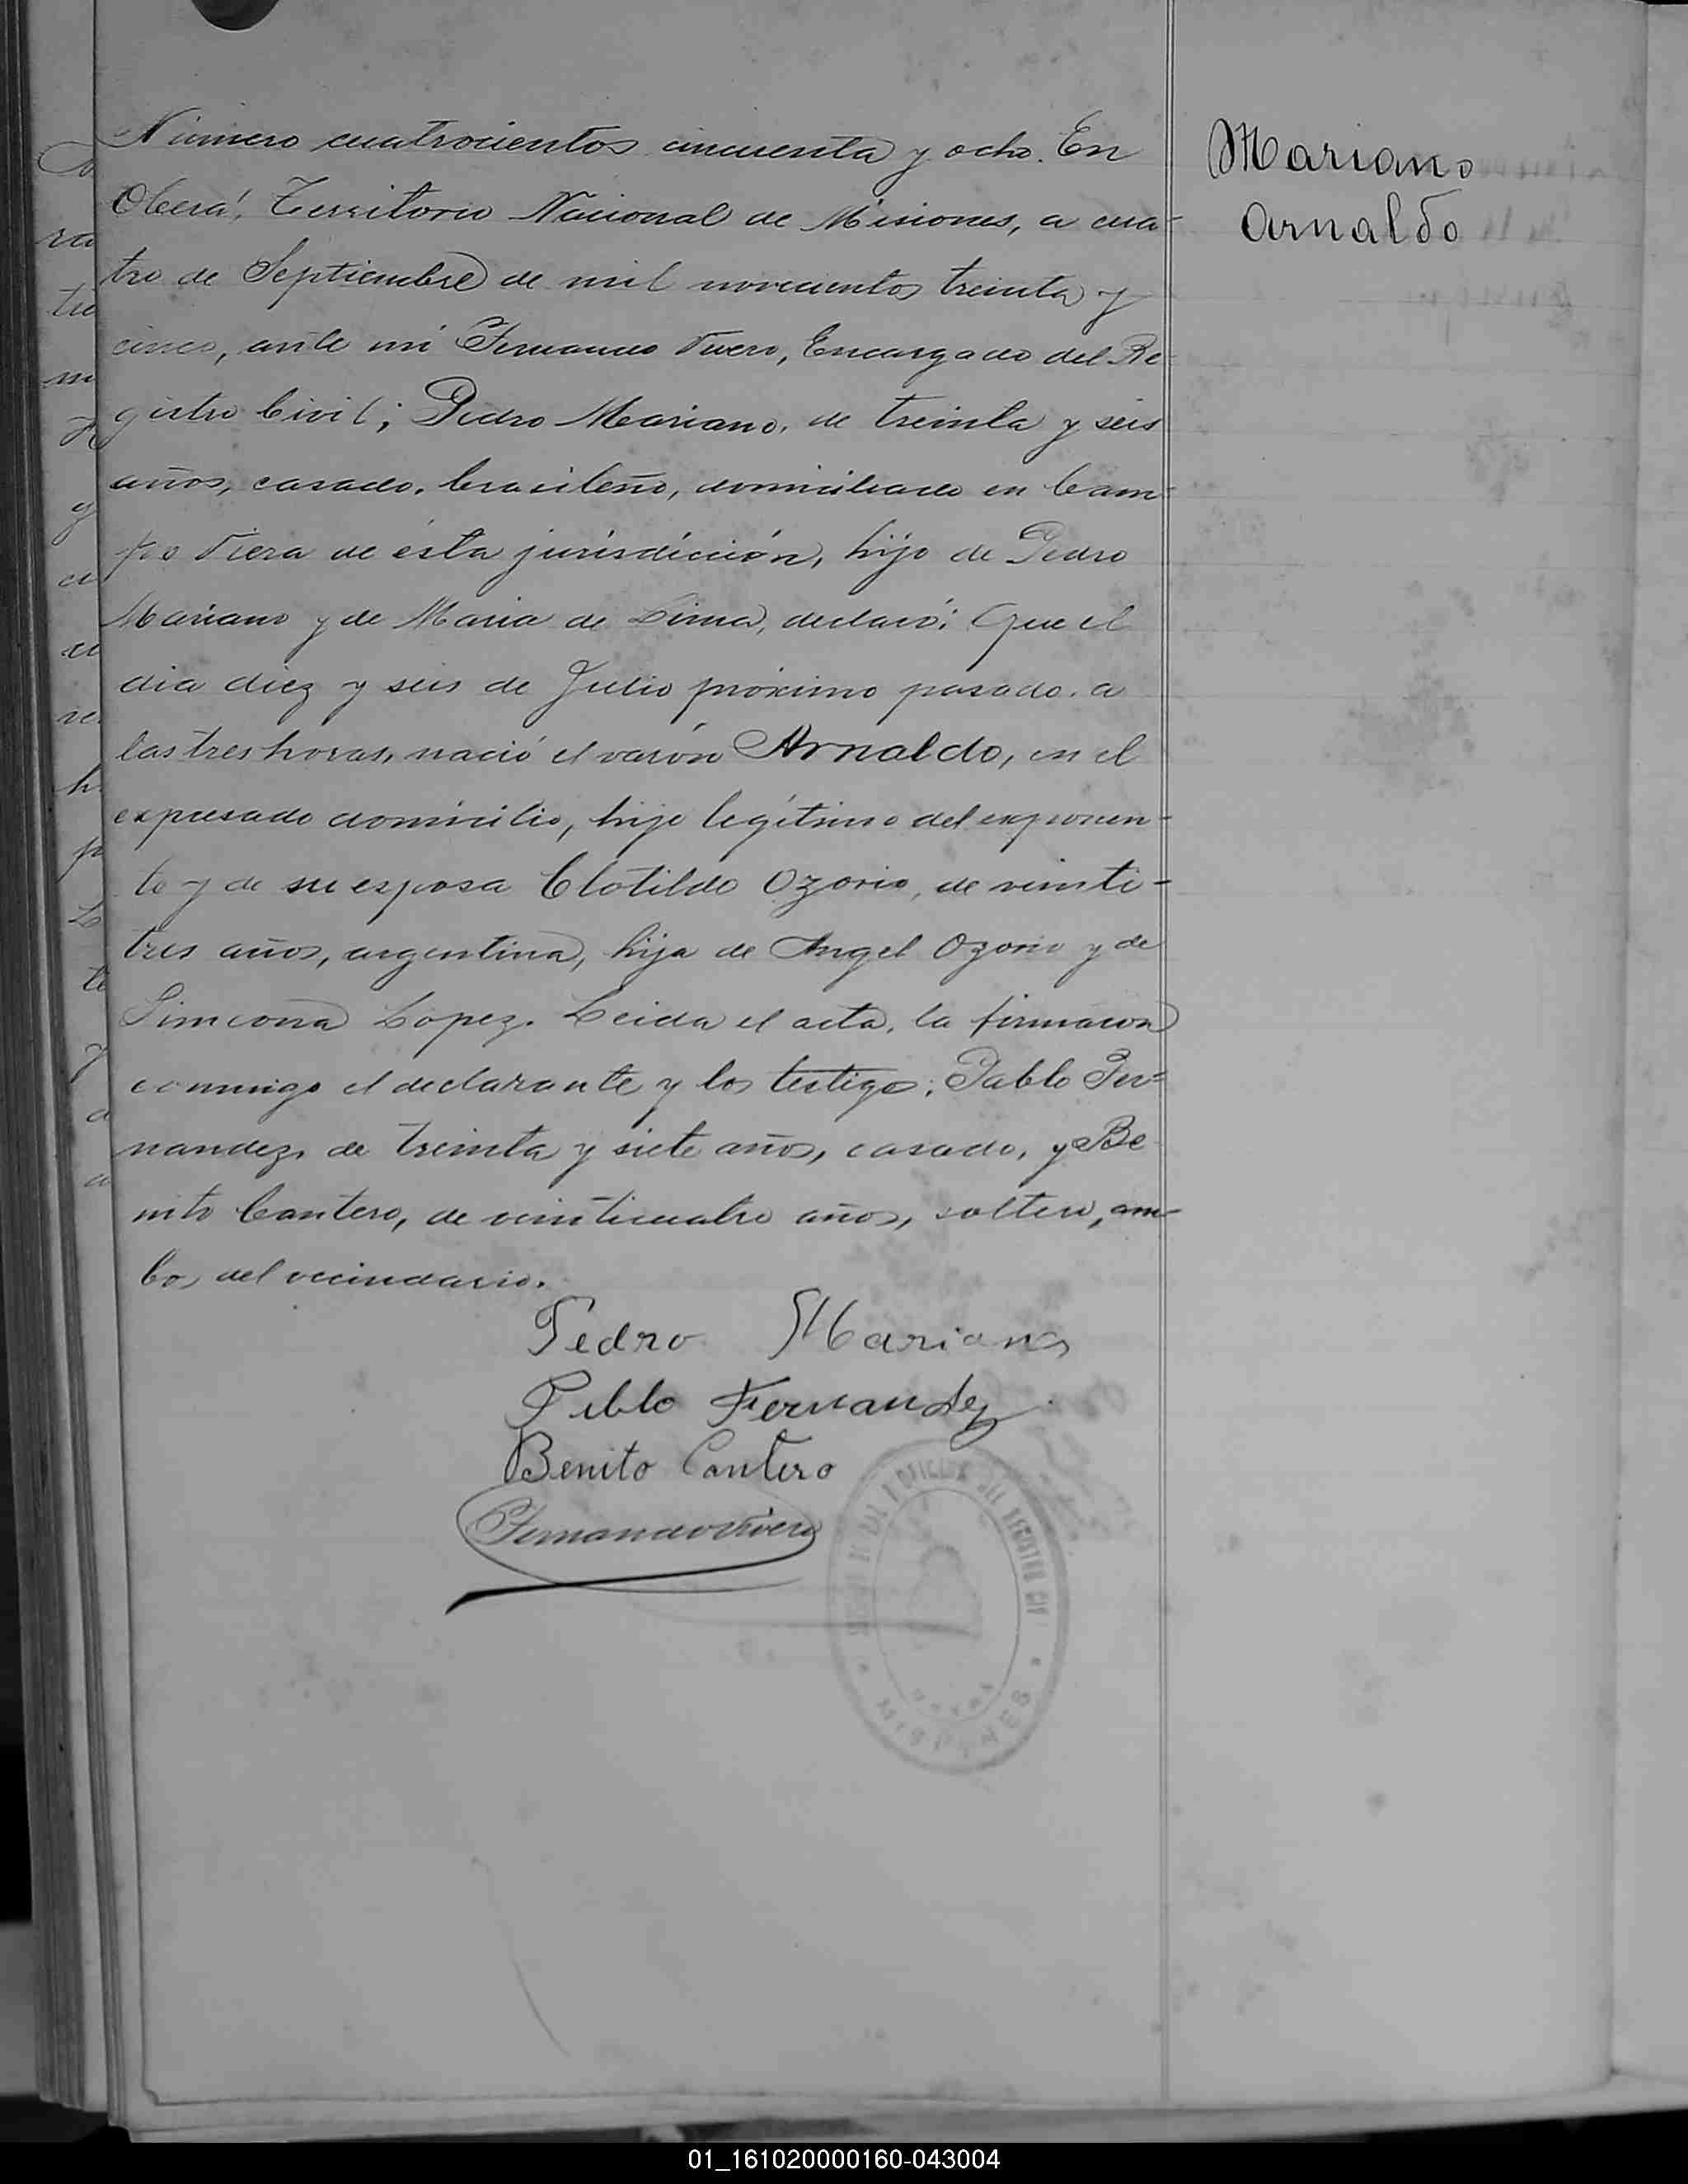 Número cuatrocientos cincuenta y ocho. En
Oberá, Territorio Nacional de Misiones, a cua-
tro de Septiembre de mil novecientos treinta y
cinco, ante mi Fernando Vivero, Encargado del Re-
gistro Civil; Pedro Mariano, de treinta y seis
años, casado, brasileño, domiciliado en Cam-
po Viera de ésta jurisdicción, hijo de Pedro
Mariano y de Maria de Lima, declaró: Que el
dia diez y seis de Julio próximo pasado, a
las tres horas, nació el varón Arnaldo, en el
expresado domicilio, hijo legítimo del exponen-
te y de su esposa Clotilde Ozorio, de veinti-
tres años, argentina, hija de Angel Ozorio y de
Simeona López. Leida el acta, la firmaron
conmigo el declarante y los testigos: Pablo Fer-
nandez, de treinta y siete años, casado, y Be
nito Cantero, de veinticuatro años, soltero, am-
bos del vecindario.
Pedro Mariano
Pablo Fernandez
Benito Cantero
Fernando Vivero
DEL REGISTRO CIV
MISIONES
Mariano
Arnaldo
01_161020000160-043004